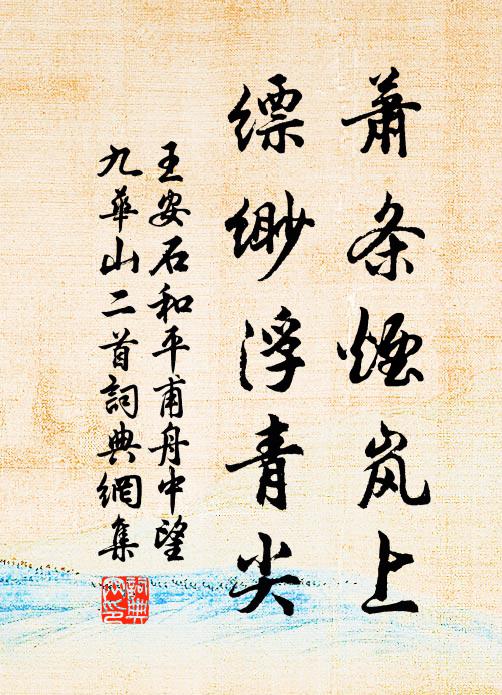 萧条烟岚上
缥缈浮青尖
王安石和平甫舟中望
九华山二首詞典網集